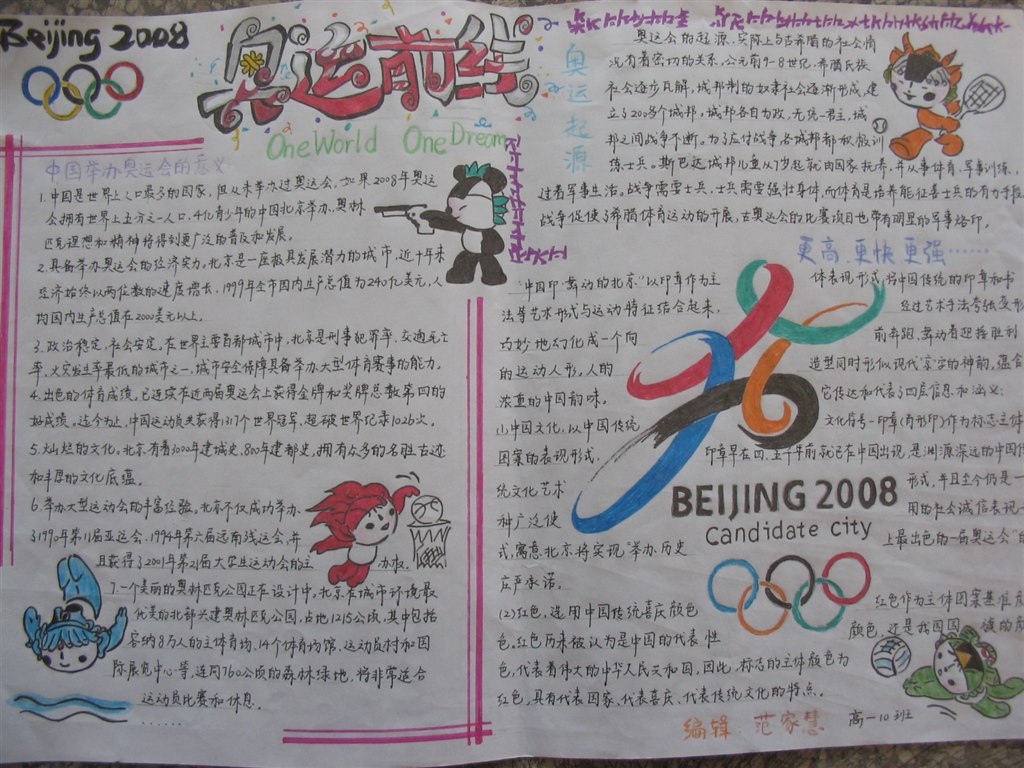 Beijing 2008
奥运前线
One World One Dream
中国举办奥运会的意义
1.中国是世界上人口最多的国家,但从未举办过奥运会,如果2008年奥运
会拥有世界上五分之一人口,4亿青少年的中国北京举办,奥林
匹克理想和精神将得到更广泛的普及和发展。
2.具备举办奥运会的经济实力,北京是一座极具发展潜力的城市,近十年来
经济始终以两位数的速度增长,1999年全市国内生产总值为240亿美元,人
均国内生产总值在2000美元以上。
3.政治稳定,社会安定。在世界主要首都城市中,北京是刑事犯罪率,交通死亡
率,火灾发生率最低的城市之一,城市安全保障具备举办大型体育赛事的能力。
4.出色的体育成绩,已连续在近两届奥运会上获得金牌和奖牌总数第四的
好成绩,迄今为止,中国运动员共获得1317个世界冠军,超破世界纪录1026次。
5.灿烂的文化,北京有着3000年建城史,800年建都史,拥有众多的名胜古迹
和丰厚的文化底蕴。
6.举办大型运动会的丰富经验,北京不仅成功举办
了1990年第11届亚运会,1994年第六届远南残运会,并
且获得了2001年第21届大学生运动会的主办权。
7.一个美丽的奥林匹克公园正在设计中,北京在城市环境最
优美的北部兴建奥林匹克公园,占地1215公顷,其中包括
容纳8万人的主体育场,14个体育场馆,运动员村和国
际展览中心等,连同760公顷的森林绿地,将非常适合
运动员比赛和休息。
......
奥运起源
奥运会的起源,实际上与古希腊的社会情
况有着密切的关系,公元前9-8世纪,希腊氏族
社会逐步瓦解,城邦制的奴隶社会逐渐形成,建
立了200多个城邦。城邦各自为政,无统一君主,城
邦之间战争不断。为了应付战争,各城邦都积极训
练士兵。斯巴达城邦儿童从7岁起就由国家抚养,并从事体育,军事训练,
过着军事生活,战争需要士兵,士兵需要强壮身体,而体育是培养能征善战士兵的有力手段,
战争促使了希腊体育运动的开展,古奥运会的比赛项目也带有明显的军事烙印。
更高 更快 更强......
"中国印·舞动的北京"以印章作为主
法等艺术形式与运动特征结合起来,
巧妙地幻化成一个向
的运动人形,人的
浓重的中国韵味。
(1)中国文化,以中国传统
图案的表现形式,
统文化艺术
种广泛使
式,寓意北京将实现"举办历史
庄严承诺。
体表现形式,将中国传统的印章和书
经过艺术手法夸张变形
前奔跑,舞动着迎接胜利
造型同时形似现代"京"字的神韵,蕴含
它传达和代表了四层信息和涵义:
文化符号-印章(肖形印)作为标志主体
印章早在四、五千年前就已在中国出现,是渊源深远的中国传
形式,并且至今仍是一
用的社会诚信表现
上最出色的一届奥运会"的
BEIJING 2008
Candidate city
(2)红色,选用中国传统喜庆颜色
红色作为主体图案基准度
色。红色历来被认为是中国的代表性
颜色,还是我国国旗的颜
色,代表着伟大的中华人民共和国,因此,标志的主体颜色为
红色,具有代表国家、代表喜庆、代表传统文化的特点。
编辑:范家慧
高一10班